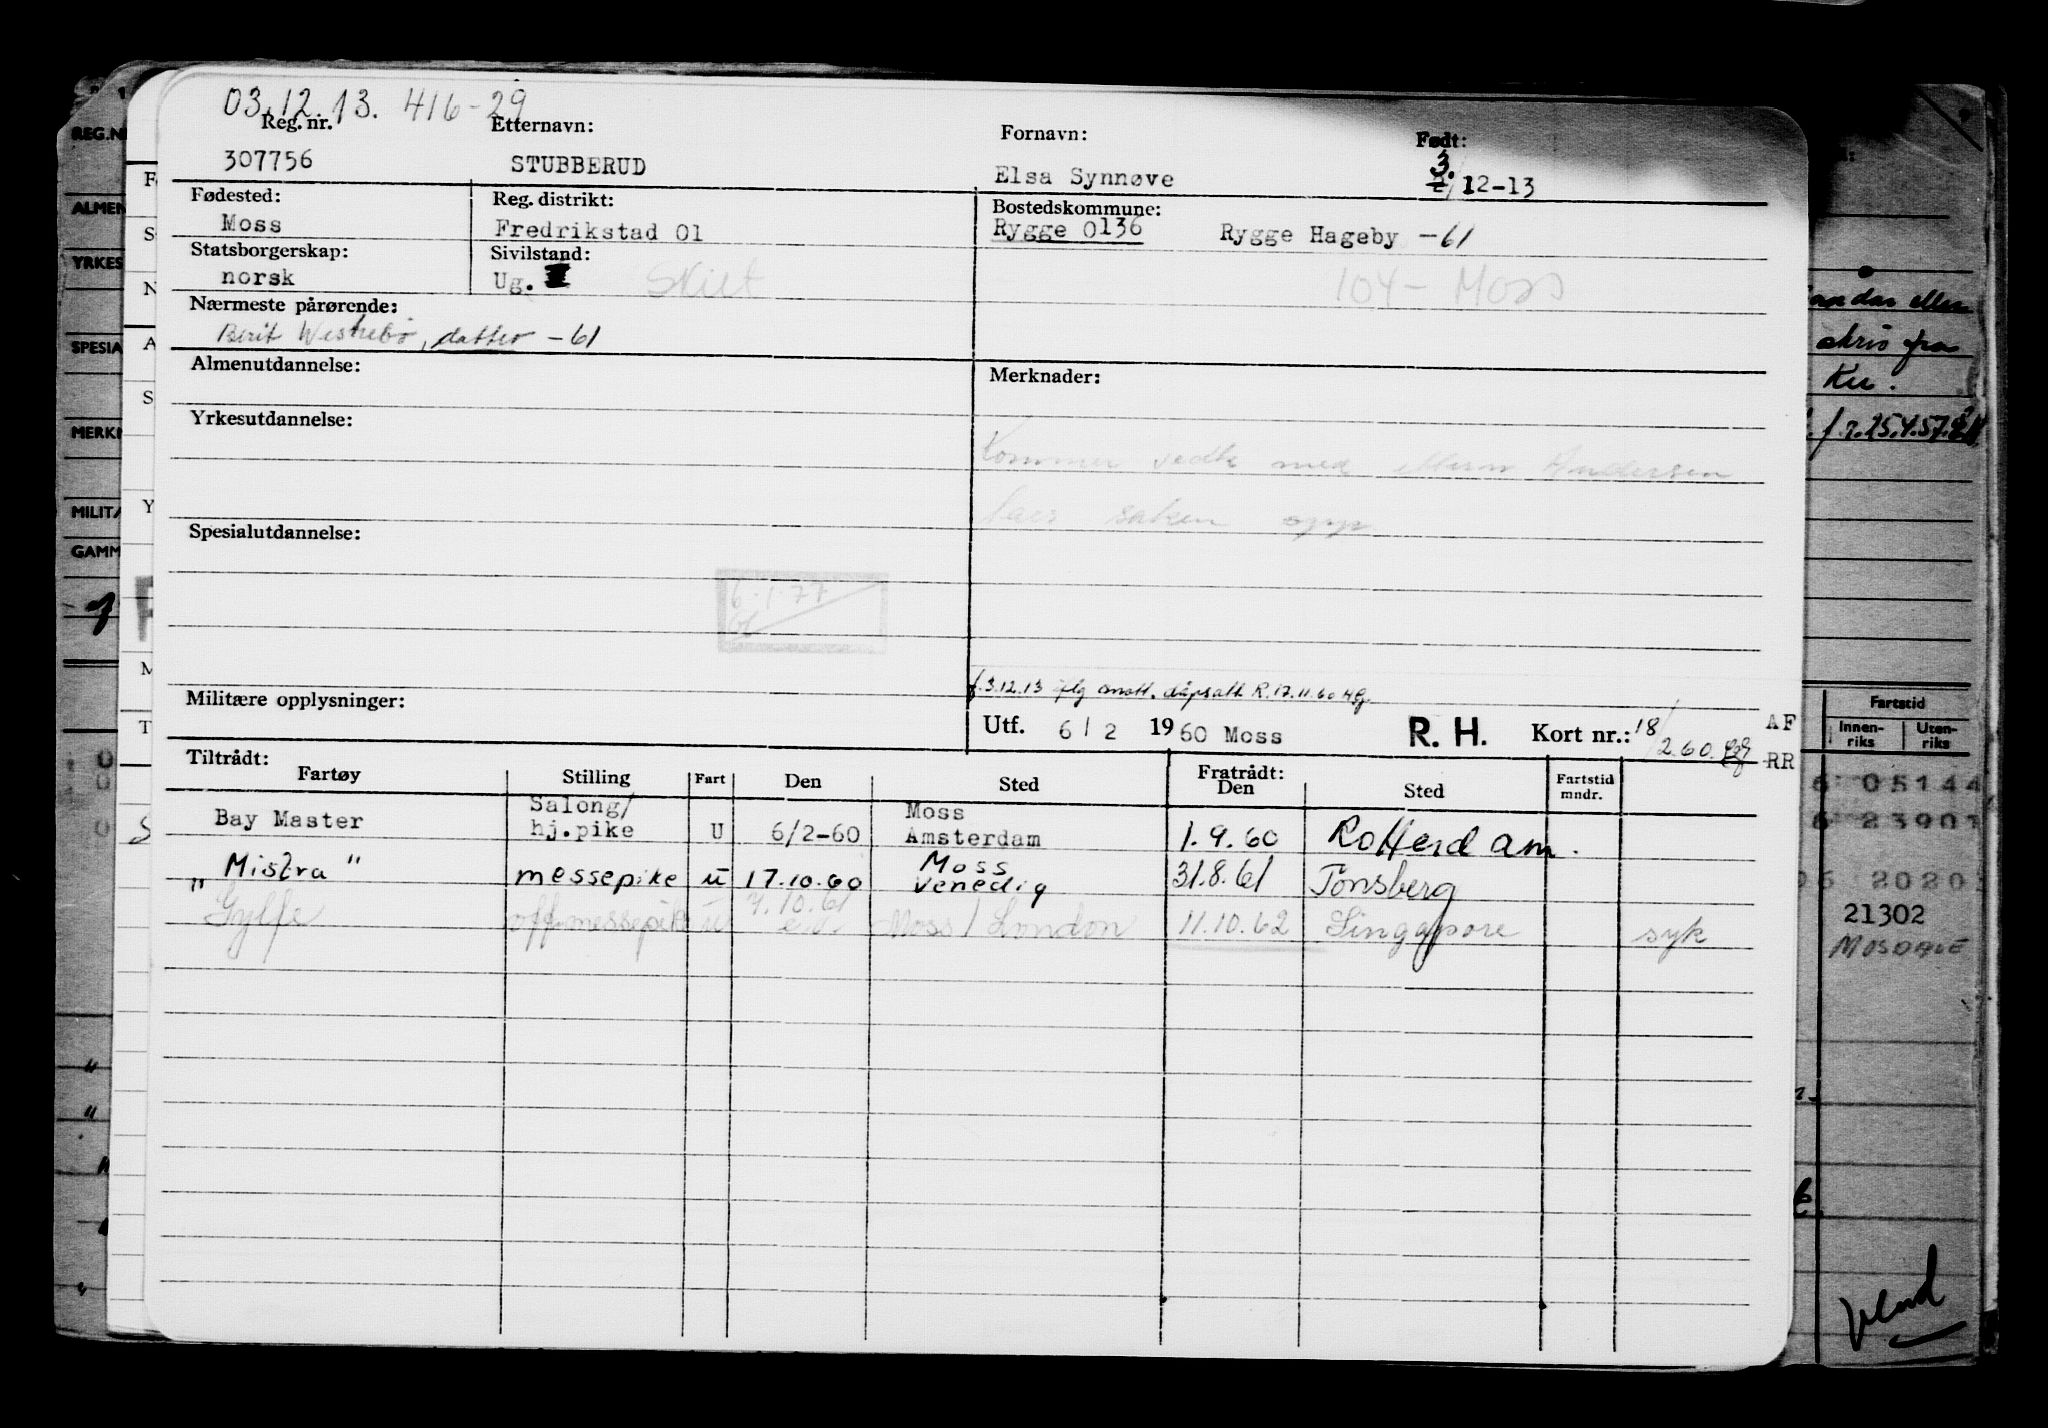 03.12.13. 416-29
Reg. nr. Etternavn: Fornavn: Født:
307756 STUBBERUD Elsa Synnøve 3. 12-13
Fødested: Reg. distrikt: Bostedskommune:
Moss Fredrikstad 01 Rygge 0136 Rygge Hageby -61
Statsborgerskap: Sivilstand:
norsk Ug. Skilt 104 - Moss
Nærmeste pårørende:
Berit, datter -61
Almenutdannelse: Merknader:
Yrkesutdannelse:
Kommer vedk med Andersen
saken opp
Spesialutdannelse:
6.1.77
f. 3.12.13 iflg dåpsatt. R. 17.11.60
Militære opplysninger:
Utf. 6/2 1960 Moss R. H. Kort nr.: 18/2.60.
Tiltrådt: Fratrådt:
Fartøy Stilling Fart Den Sted Den Sted Fartstid mndr.
Bay Master Salong/ hj.pike U 6/2-60 Moss Amsterdam 1.9.60 Rotterdam.
"Mistra" messepike u 17.10.60 Moss Venedig 31.8.61 Tønsberg
Gylfe off.messepike u 7.10.61 Moss / London 11.10.62 Singapore syk
AF
RR
REG.N
ALMEN
YRKES
SPESIA
MERK
MILIT
GAMM
eller
skriv fra
Ku.
r. 25.4.57.
Fartstid
Innen-riks Uten-riks
05144
23901
2020
21302
MOSDALE
Vend